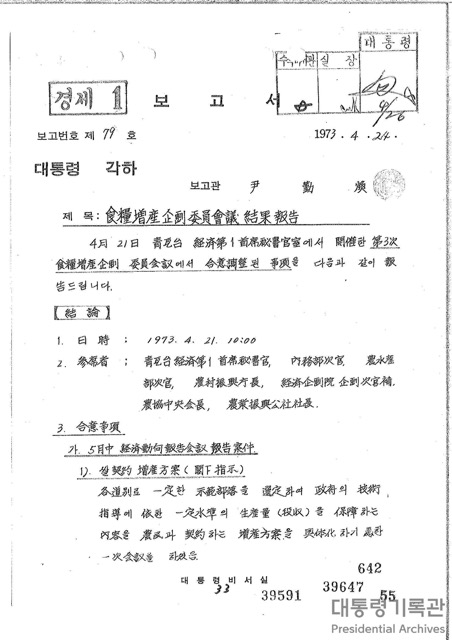 대통령
수석비서관 실장
4/26
경제 1 보고서
보고번호 제 79 호 1973. 4. 24.
대통령 각하
보고관 尹勤煥
제목: 食糧增産企劃委員會議 結果報告
4月 21日 靑瓦台 経済第1首席秘書官室에서 開催한 第3次
食糧增産企劃 委員会议에서 合意調整된 事項을 다음과 같이 報
告드립니다.
【結論】
1. 日時 : 1973. 4. 21. 10:00
2. 參席者 : 靑瓦台経済第1首席秘書官, 內務部次官, 農水産
部次官, 農村振興庁長, 経済企劃院 企劃次官補,
農協中央会長, 農業振興公社社長.
3. 合意事項
가. 5月中 経済動向報告会议 報告案件
1). 쌀契約 增産方案 (閣下指示)
各道別로 一定한 示範部落을 選定하여 政府의 技術
指導에 依한 一定水準의 生産量(段收)을 保障하는
内容을 農民과 契約하는 增産方案을 具体化 하기 爲한
一次会议을 하였음
642
대통령비서실
33 39591 39647 55
대통령기록관
Presidential Archives